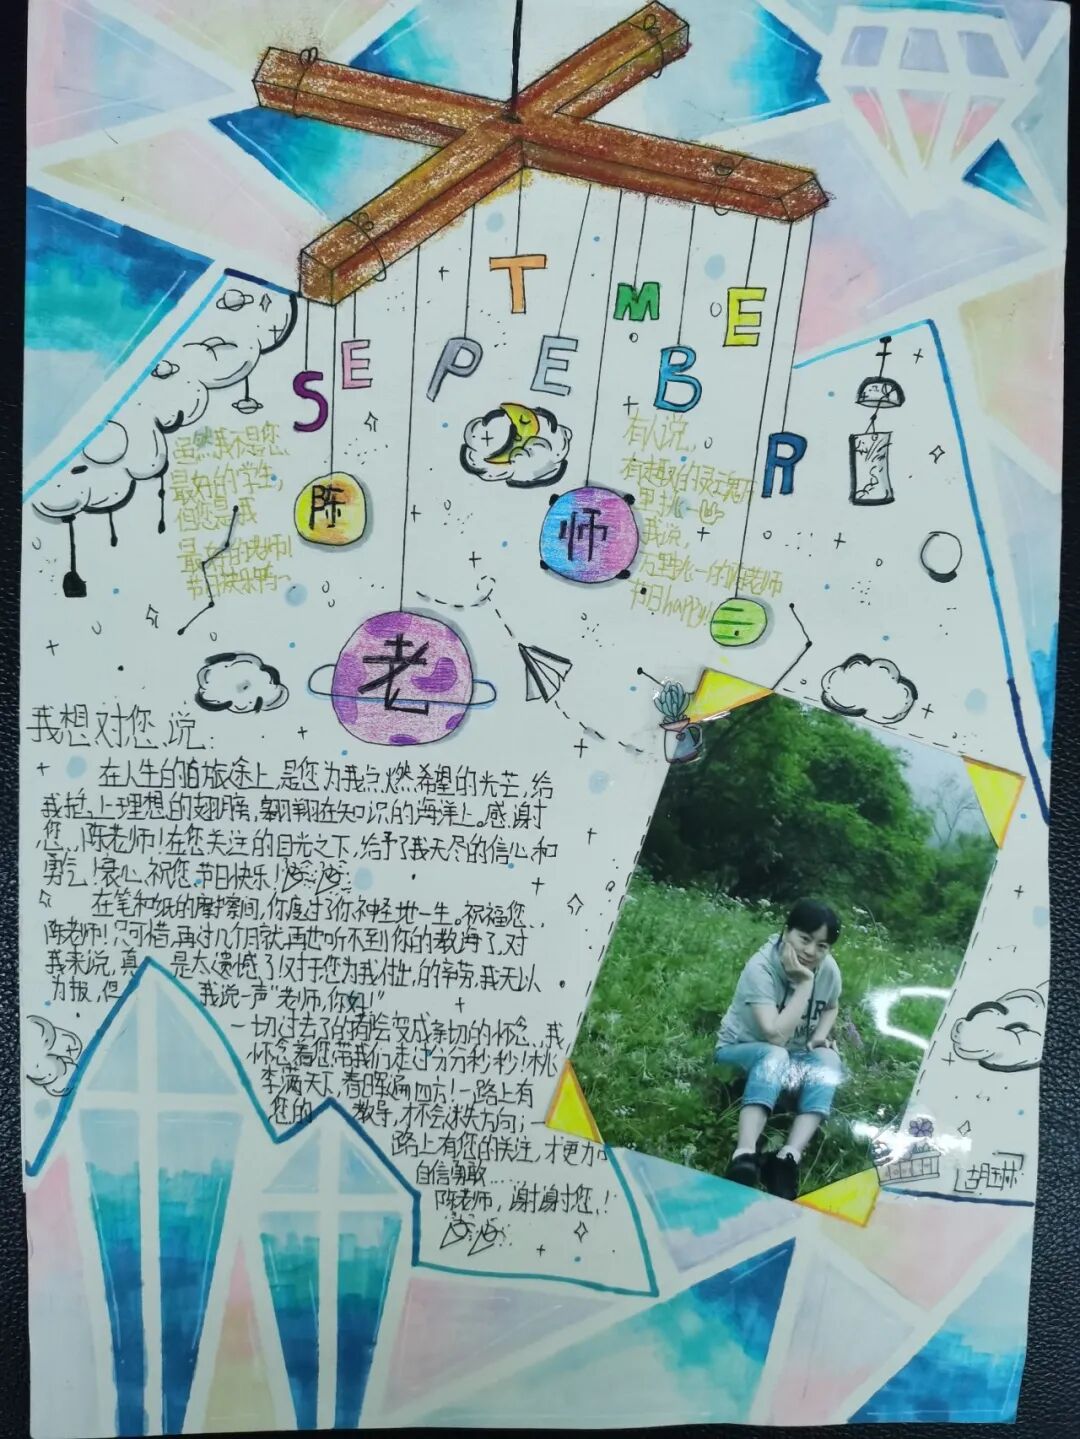 SEPTEMBER
陈
老
师
虽然我不是您
最好的学生,
但您是我
最好的老师!
节日快乐鸭~
有人说,
有趣的灵魂万
里挑一
我说,
万里挑一的陈老师
节日happy!
我想对您说:
在人生的旅途上,是您为我点燃希望的光芒,给
我插上理想的翅膀,翱翔在知识的海洋上。感谢
您,陈老师!在您关注的目光之下,给予了我无尽的信心和
勇气!衷心祝您节日快乐!
在笔和纸的摩擦间,你度过了你神经地一生。祝福您,
陈老师!只可惜,再过几个月就再也听不到你的教海了,对
我来说,真是太遗憾了!对于您为我付出的辛劳,我无以
为报,但我说一声“老师,你好!”
一切过去了的都会变成亲切的怀念,我
怀念着您带我们走过分分秒秒!桃
李满天下,春晖遍四方!一路上有
您的教导,才不会迷失方向;一
路上有您的关注,才更加
自信勇敢……
陈老师,谢谢您!
胡琳